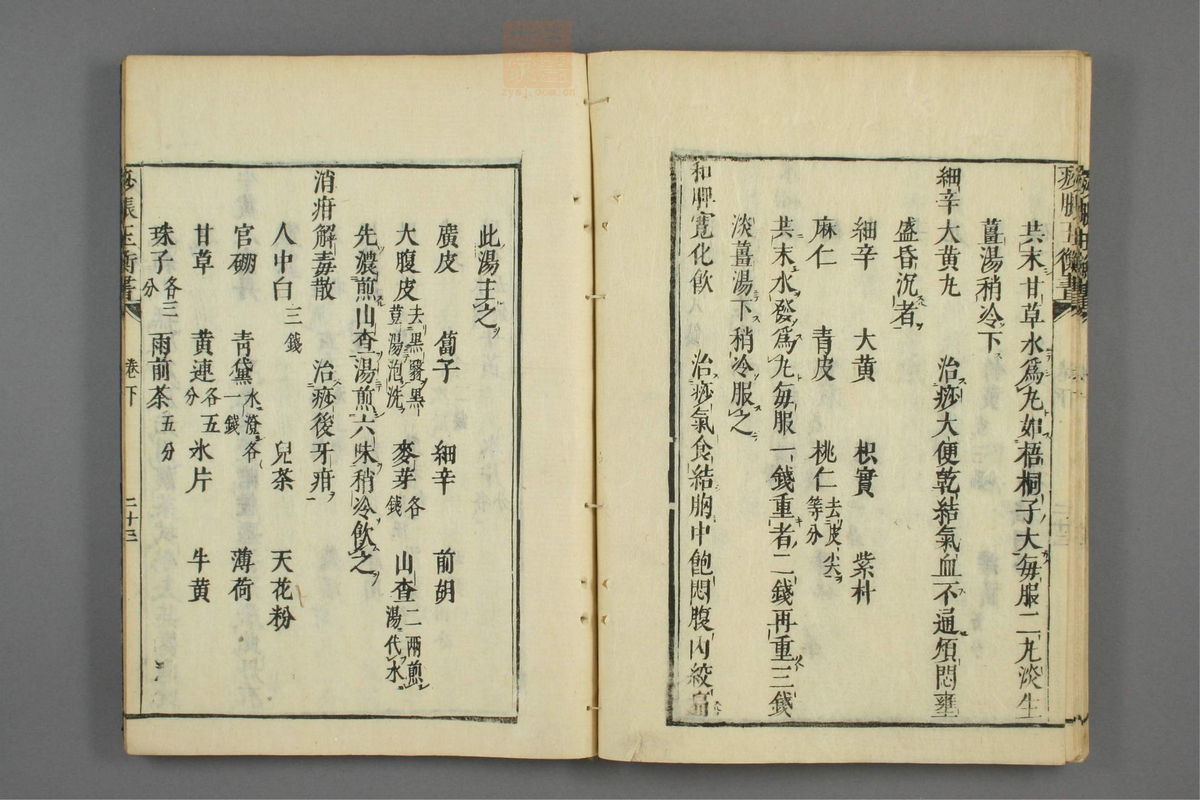 共末甘草水爲丸如梧桐子大每服二丸淡生
薑湯稍冷下
細辛大黄丸 治痧大便乾結氣血不通煩悶壅
盛昏沉者
細辛 大黄 枳實 紫朴
麻仁 青皮 桃仁去皮尖等分
共末水發爲丸每服一錢重者二錢再重三錢
淡薑湯下稍冷服之
和脾寬化飲 治痧氣食結胸中飽悶腹内絞
此湯主之
廣皮 蔔子 細辛 前胡
大腹皮去黑翳黑荳湯泡洗 麥芽各錢 山查二兩煎湯代水
先濃煎山查湯煎六味稍冷飲之
消疳解毒散 治痧後牙疳
人中白三錢 兒茶 天花粉
官硼 青黛水澄各一錢 薄荷
甘草 黄連各五分 氷片 牛黄
珠子各三分 雨前茶五分
痧脹玉衡書 卷下 二十三
zysj.com.cn